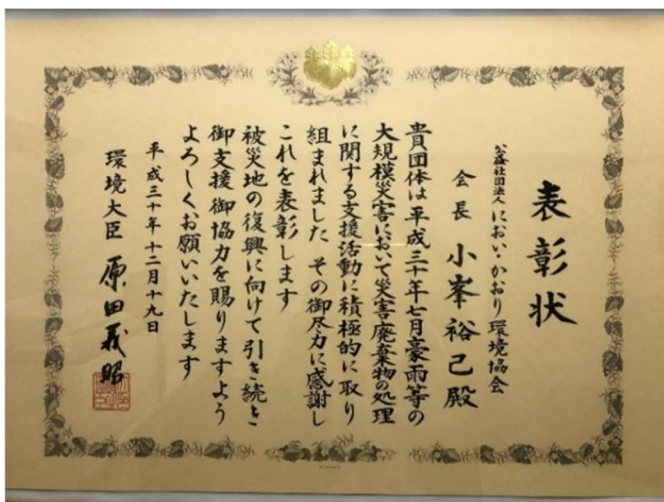 表彰状
公益社団法人 におい・かおり環境協会
会長 小峯裕己殿
貴団体は平成三十年七月豪雨等の
大規模災害において災害廃棄物の処理
に関する支援活動に積極的に取り
組まれました その御尽力に感謝し
これを表彰します
被災地の復興に向けて引き続き
御支援御協力を賜りますよう
よろしくお願いいたします
平成三十年十二月十九日
環境大臣 原田義昭